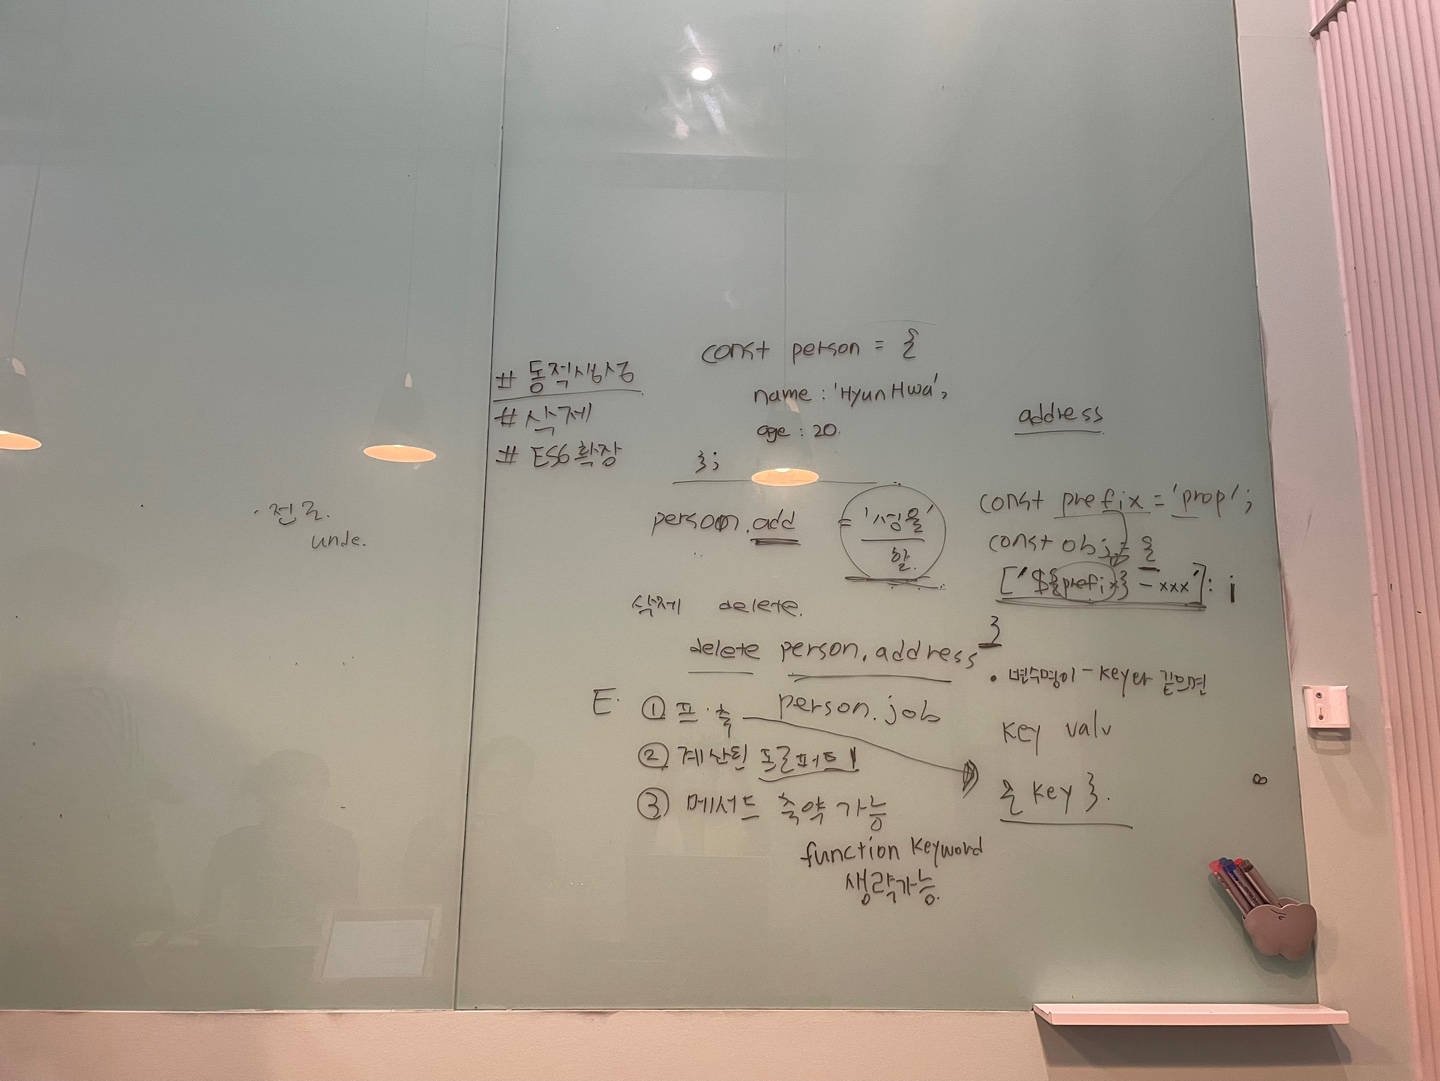 # 동적생성
# 삭제
# ES6 확장
const person = {
name : 'HyunHwa',
age : 20.
};
person.add = '서울'
할.
삭제 delete.
delete person.address
person.job
E. ① 프.축
② 계산된 프로퍼티
③ 메서드 축약 가능
function keyword
생략가능.
address
const prefix = 'prop';
const obj = {
['${prefix} - xxx']: i
}
• 변수명이 - key와 같으면
key valu
{ key }.
unde.